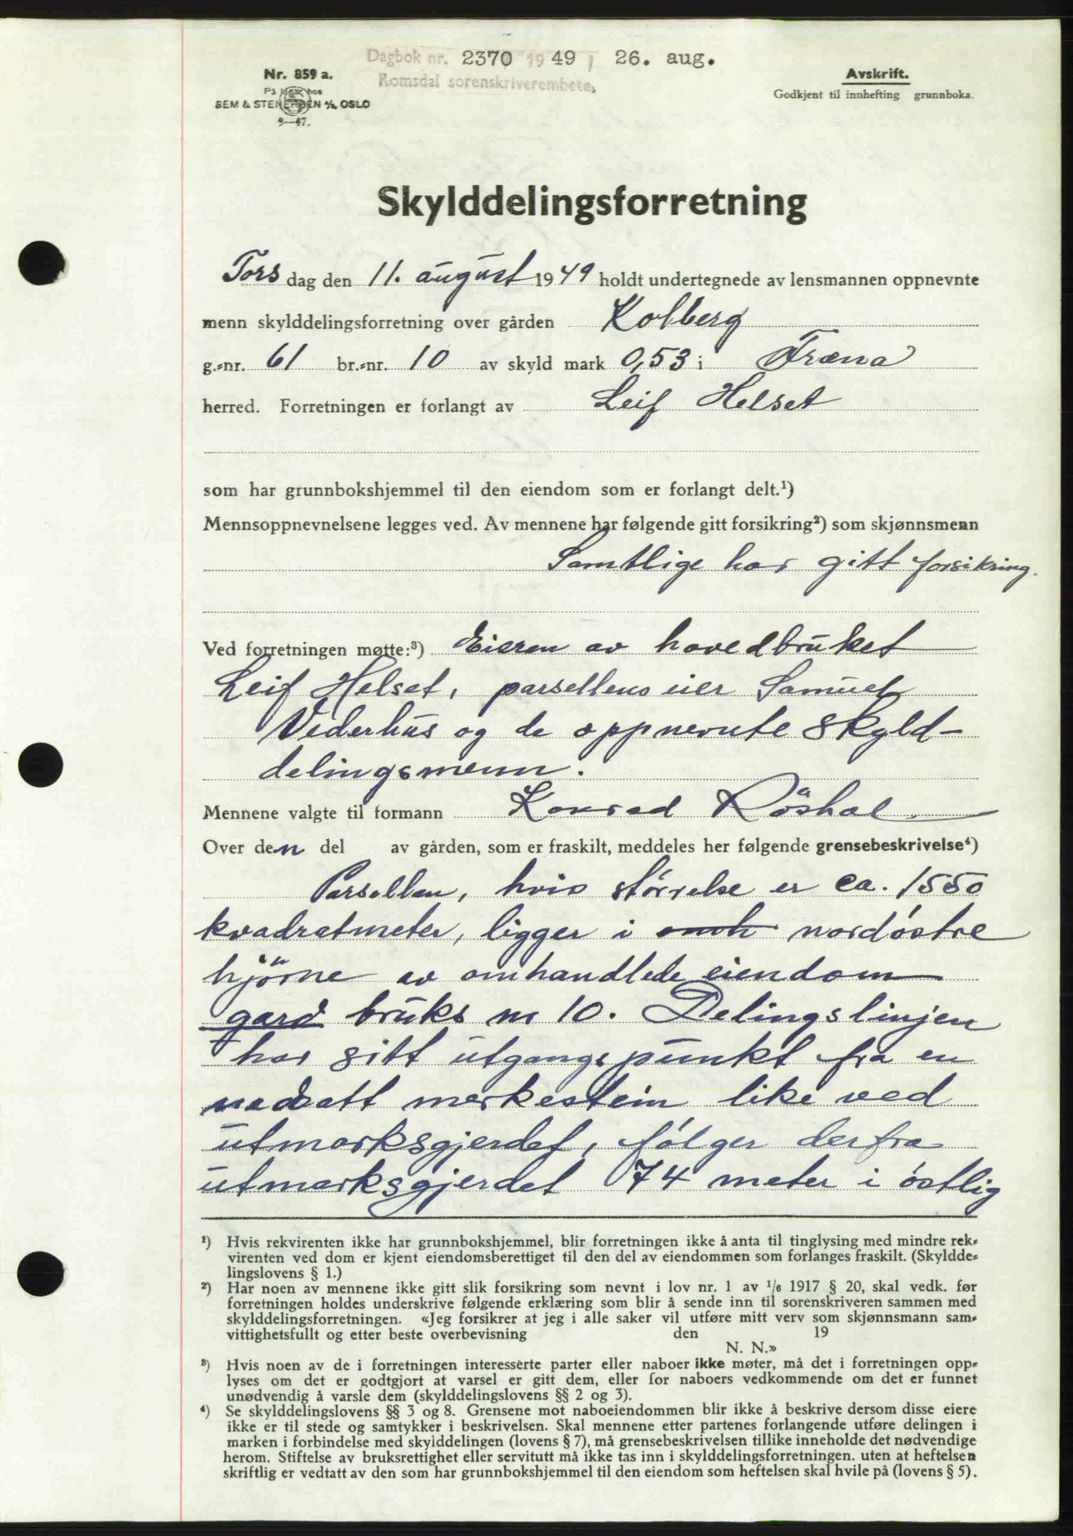 Dagbok nr. 2370 1949 / 26. aug.
Romsdal sorenskriverembete,
Nr. 859 a.
På lager hos
SEM & STENERSEN A/S, OSLO
9—47.
Avskrift.
Godkjent til innhefting grunnboka.
Skylddelingsforretning
Tors dag den 11. august 1949 holdt undertegnede av lensmannen oppnevnte
menn skylddelingsforretning over gården Kolberg
g.-nr. 61 br.-nr. 10 av skyld mark 0,53 i Fræna
herred. Forretningen er forlangt av Leif Helset
som har grunnbokshjemmel til den eiendom som er forlangt delt.¹)
Mennsoppnevnelsene legges ved. Av mennene har følgende gitt forsikring²) som skjønnsmenn
Samtlige har gitt forsikring.
Ved forretningen møtte:³) Eieren av hovedbruket
Leif Helset, parsellens eier Samuel
Viderhus og de oppnevnte skyld-
delingsmenn.
Mennene valgte til formann Konrad Röshol.
Over den del av gården, som er fraskilt, meddeles her følgende grensebeskrivelse⁴)
Parsellen, hvis störrelse er ca. 1550
kvadratmeter, ligger i nordöstre
hjörne av omhandlede eiendom
gard bruks nr 10. Delingslinjen
har sitt utgangspunkt fra en
nedsatt merkestein like ved
utmarksgjerdet, fölger derfra
utmarksgjerdet 74 meter i östlig
¹) Hvis rekvirenten ikke har grunnbokshjemmel, blir forretningen ikke å anta til tinglysing med mindre rek-
virenten ved dom er kjent eiendomsberettiget til den del av eiendommen som forlanges fraskilt. (Skyldde-
lingslovens § 1.)
²) Har noen av mennene ikke gitt slik forsikring som nevnt i lov nr. 1 av ¹/₆ 1917 § 20, skal vedk. før
forretningen holdes underskrive følgende erklæring som blir å sende inn til sorenskriveren sammen med
skylddelingsforretningen. «Jeg forsikrer at jeg i alle saker vil utføre mitt verv som skjønnsmann sam-
vittighetsfullt og etter beste overbevisning den 19
N. N.»
³) Hvis noen av de i forretningen interesserte parter eller naboer ikke møter, må det i forretningen opp-
lyses om det er godtgjort at varsel er gitt dem, eller for naboers vedkommende om det er funnet
unødvendig å varsle dem (skylddelingslovens §§ 2 og 3).
⁴) Se skylddelingslovens §§ 3 og 8. Grensene mot naboeiendommen blir ikke å beskrive dersom disse eiere
ikke er til stede og samtykker i beskrivelsen. Skal mennene etter partenes forlangende utføre delingen i
marken i forbindelse med skylddelingen (lovens § 7), må grensebeskrivelsen tillike inneholde det nødvendige
herom. Stiftelse av bruksrettighet eller servitutt må ikke tas inn i skylddelingsforretningen. uten at heftelsen
skriftlig er vedtatt av den som har grunnbokshjemmel til den eiendom som heftelsen skal hvile på (lovens § 5).